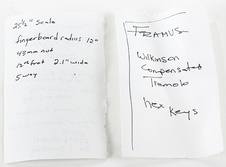 25½" Scale
fingerboard radius 12"
43mm nut
12th fret 2.1" wide
5 way
FRAMUS
Wilkinson
Compensated
Tremolo
hex Keys